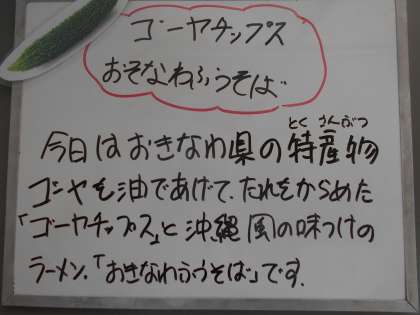 ゴーヤチップス
おきなわふうそば
とくさんぶつ
今日はおきなわ県の特産物
ゴーヤを油であげて、たれをからめた
「ゴーヤチップス」と沖縄風の味つけの
ラーメン、「おきなわふうそば」です。